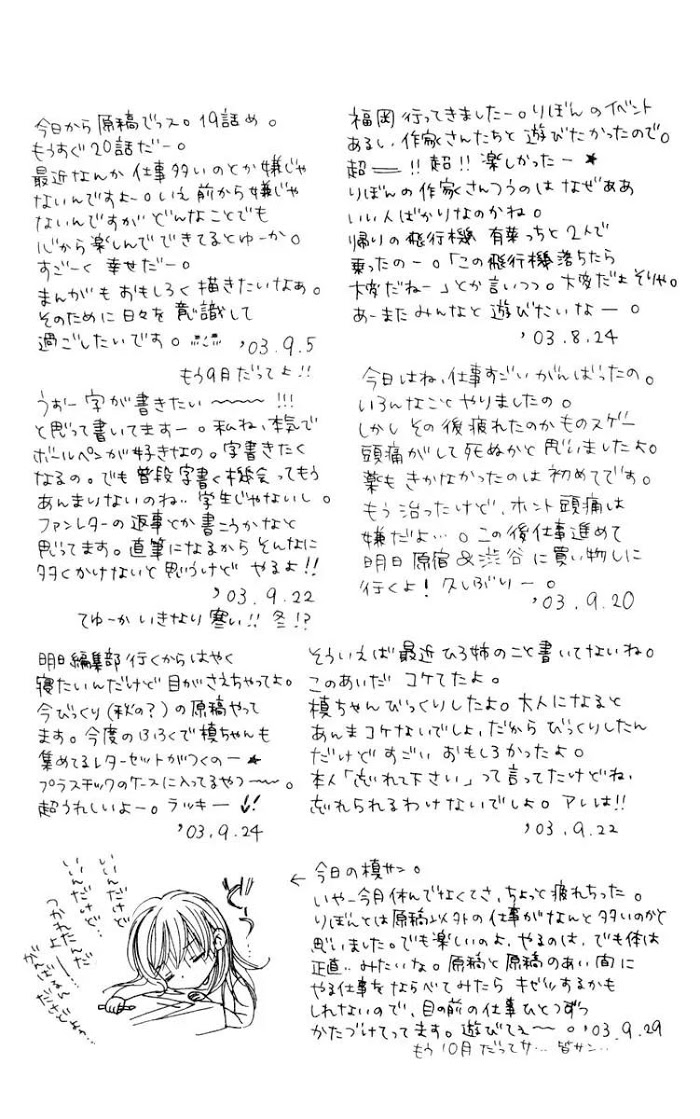 福岡行ってきましたー。りぼんのイベント
あるし、作家さんたちと遊びたかったので。
超――!!超!!楽しかったー★
りぼんの作家さんつうのはなぜああ
いい人ばかりなのかね。
帰りの飛行機 有葉っちと2人で
乗ったのー。「この飛行機落ちたら
大変だねー」とか言いつつ。大変だよそりゃ。
あーまたみんなと遊びたいなー。
'03.8.24
今日から原稿でっス。19話め。
もうすぐ20話だー。
最近なんか仕事多いのとか嫌じゃ
ないんですよー。いえ前から嫌じゃ
ないんですが どんなことでも
心から楽しんでできてるとゆーか。
すごーく幸せだー。
まんがもおもしろく描きたいなぁ。
そのために日々を意識して
過ごしたいです。
'03.9.5
もう9月だってよ!!
今日はね、仕事すごいがんばったの。
いろんなことやりましたの。
しかしその後疲れたのかものスゲー
頭痛がして死ぬかと思いましたよ。
薬もきかなかったのは初めてです。
もう治ったけど、ホント頭痛は
嫌だよ…。この後仕事進めて
明日原宿&渋谷に買い物しに
行くよ!久しぶりー。
'03.9.20
うおー字が書きたい〜〜〜!!!
と思って書いてますー。私ね、本気で
ボールペンが好きなの。字書きたく
なるの。でも普段字書く機会ってもう
あんまりないのね..学生じゃないし。
ファンレターの返事とか書こうかなと
思ってます。直筆になるからそんなに
多くかけないと思うけど やるよ!!
'03.9.22
てゆーか いきなり寒い!!冬!?
そういえば最近ひろ姉のこと書いてないね。
このあいだ コケてたよ。
槙ちゃんびっくりしたよ。大人になると
あんまコケないでしょ、だからびっくりしたん
だけどすごいおもしろかったよ。
本人「忘れて下さい」って言ってたけどね、
忘れられるわけないでしょ。アレは!!
'03.9.22
明日編集部行くからはやく
寝たいんだけど目がさえちゃってよ。
今びっくり(秋の?)の原稿やって
ます。今度のふろくで槙ちゃんも
集めてるレターセットがつくのー★
プラスチックのケースに入ってるやつ〜〜。
超うれしいよー。ラッキー!!
'03.9.24
←今日の槙サン。
いやー今月休んでなくてさ、ちょっと疲れちった。
りぼんとは原稿以外の仕事がなんと多いのかと
思いました。でも楽しいのよ、やるのは、でも体は
正直..みたいな。原稿と原稿のあい間に
やる仕事をならべてみたらキゼツするかも
しれないので、目の前の仕事ひとつずつ
かたづけてってます。遊びてぇ〜。'03.9.29
もう10月だってサ…皆サン..
いいんだけど
いいんだけど…
つかれたんだ
よー…